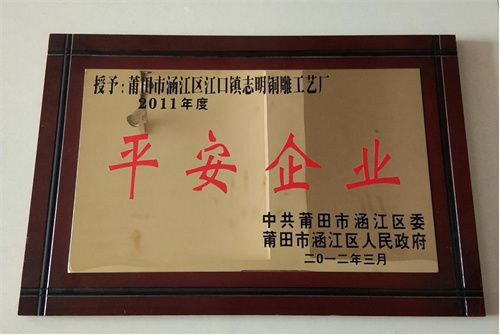 授予：莆田市涵江区江口镇志明铜雕工艺厂
2011年度
平安企业
中共莆田市涵江区委
莆田市涵江区人民政府
二〇一二年三月